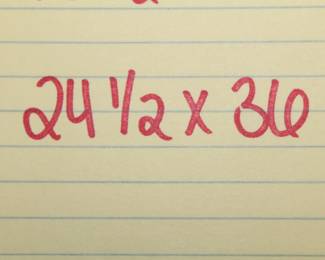 24 1/2 x 36